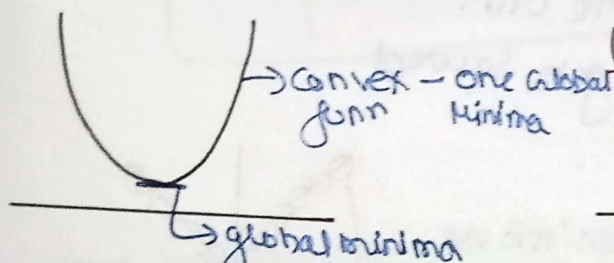 → convex - one Global
funn Minima
→ global minima